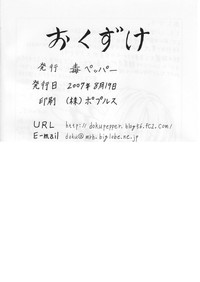 おくずけ
発行 毒ペッパー
発行日 2007年8月19日
印刷 (株)ポプルス
URL http://dokupepper.blog26.fc2.com/
E-mail doku@mtb.biglobe.ne.jp